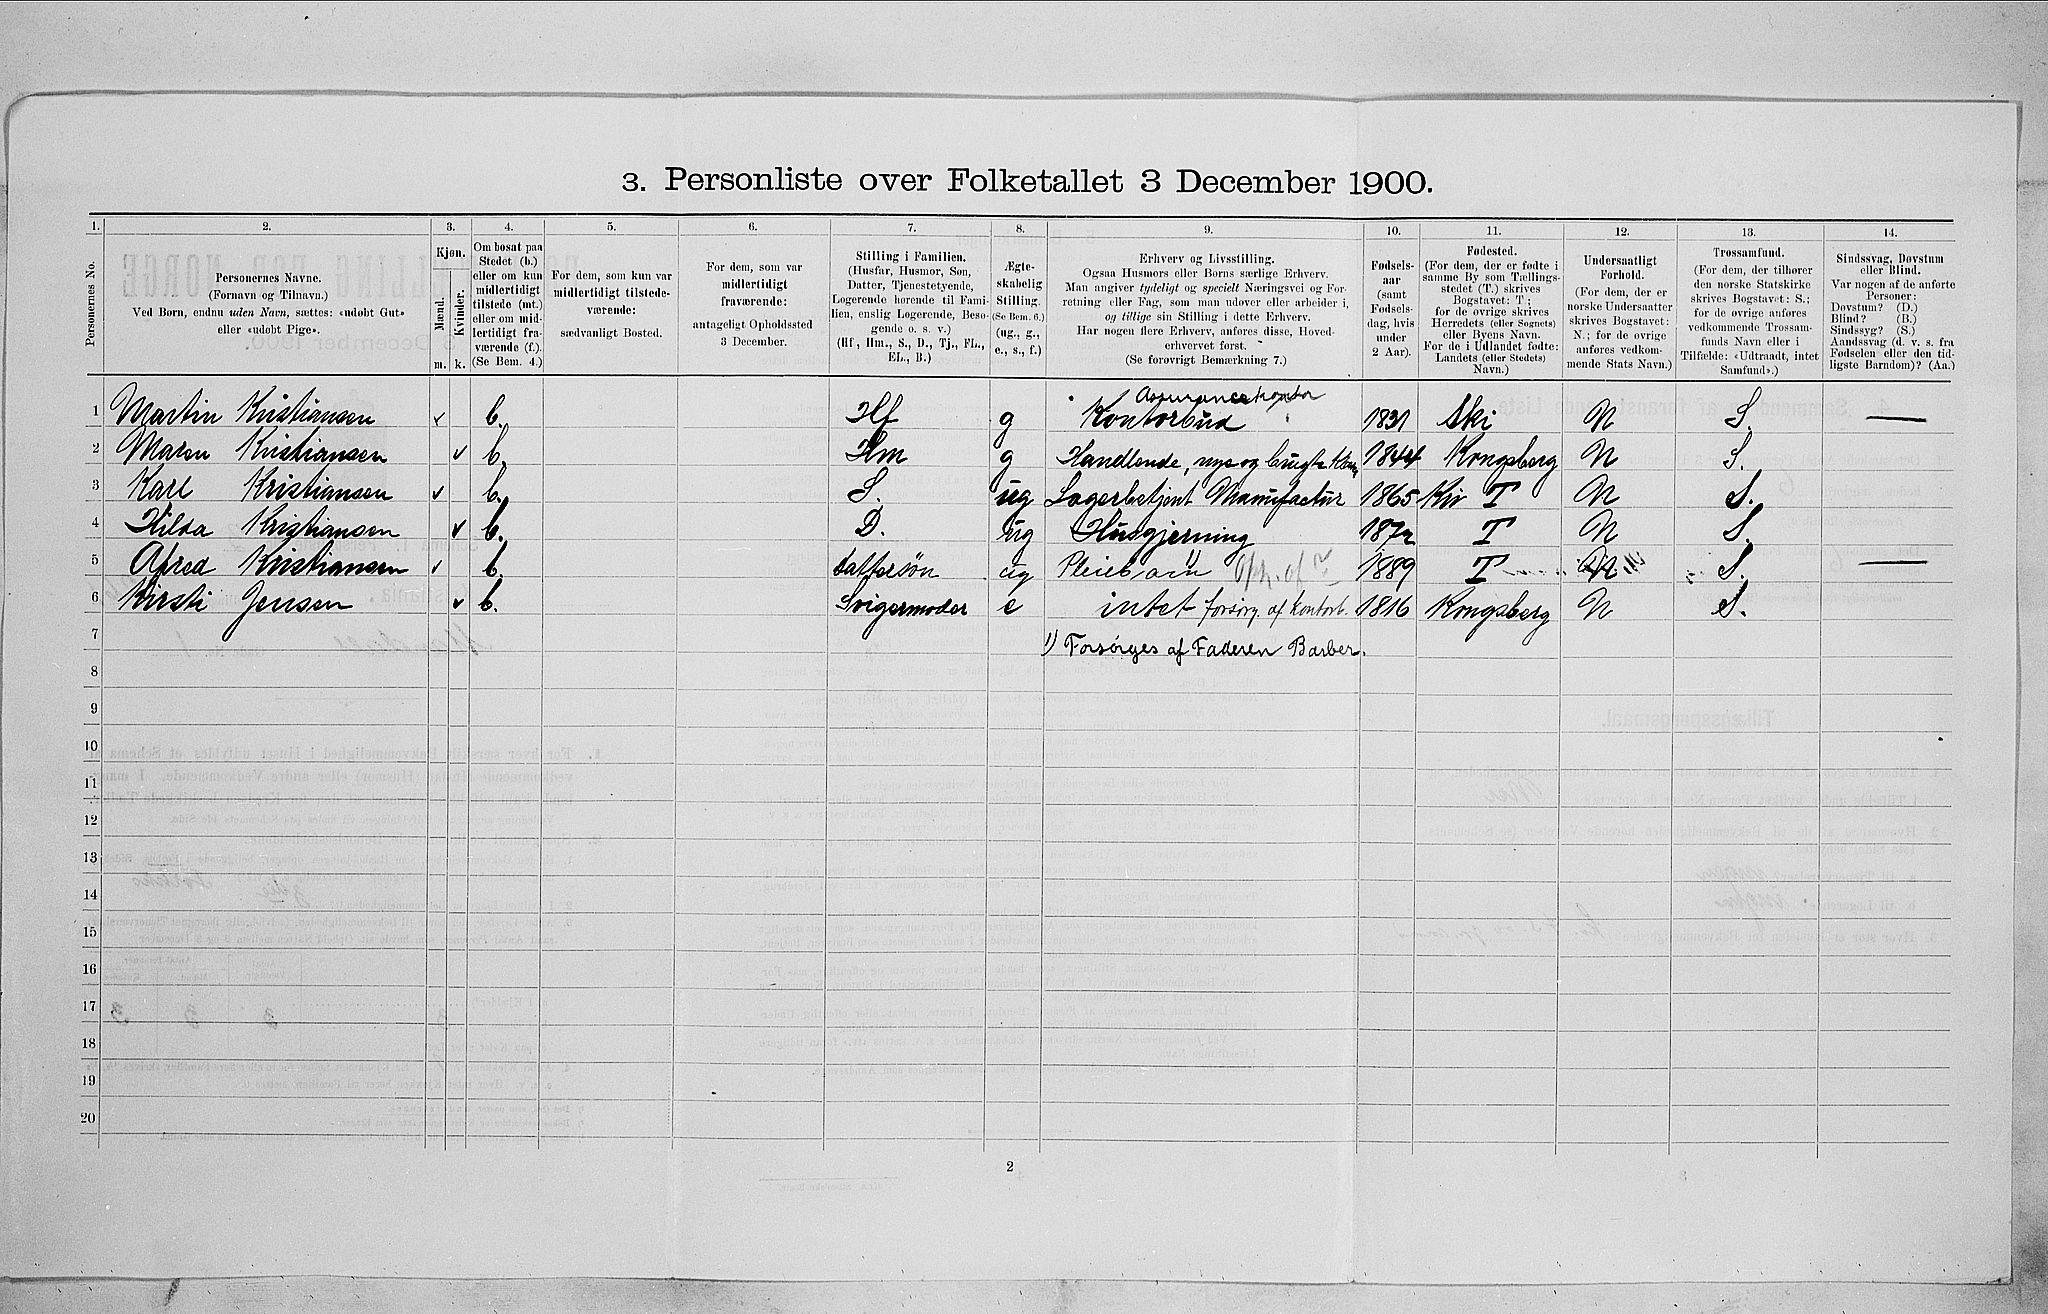 3. Personliste over Folketallet 3 December 1900.
1. 2. 3. 4. 5. 6. 7. 8. 9. 10. 11. 12. 13. 14.
Personernes No.
Personernes Navne.
(Fornavn og Tilnavn.)
Ved Børn, endnu uden Navn, sættes: «udøbt Gut»
eller «udøbt Pige».
Kjøn.
Mænd.
Kvinder.
m. k.
Om bosat paa
Stedet (b.)
eller om kun
midlertidigt
tilstede (mt.)
eller om mid-
lertidigt fra-
værende (f.).
(Se Bem. 4.)
For dem, som kun var
midlertidigt tilstede-
værende:
sædvanligt Bosted.
For dem, som var
midlertidigt
fraværende:
antageligt Opholdssted
3 December.
Stilling i Familien.
(Husfar, Husmor, Søn,
Datter, Tjenestetyende,
Logerende hørende til Fami-
lien, enslig Logerende, Besø-
gende o. s. v.)
(Hf, Hm., S., D., Tj., FL.,
EL., B.)
Ægte-
skabelig
Stilling.
(Se Bem. 6.)
(ug., g.,
e., s., f.)
Erhverv og Livsstilling.
Ogsaa Husmors eller Børns særlige Erhverv.
Man angiver tydeligt og specielt Næringsvei og For-
retning eller Fag, som man udøver eller arbeider i,
og tillige sin Stilling i dette Erhverv.
Har nogen flere Erhverv, anføres disse, Hoved-
erhvervet først.
(Se forøvrigt Bemærkning 7.)
Fødsels-
aar
(samt
Fødsels-
dag, hvis
under
2 Aar).
Fødested.
(For dem, der er fødte i
samme By som Tællings-
stedet (T.) skrives
Bogstavet: T;
for de øvrige skrives
Herredets (eller Sognets)
eller Byens Navn.
For de i Udlandet fødte:
Landets (eller Stedets)
Navn.)
Undersaatligt
Forhold.
(For dem, der er
norske Undersaatter
skrives Bogstavet:
N.; for de øvrige
anføres vedkom-
mende Stats Navn.)
Trossamfund.
(For dem, der tilhører
den norske Statskirke
skrives Bogstavet: S.;
for de øvrige anføres
vedkommende Trossam-
funds Navn eller i
Tilfælde: «Udtraadt, intet
Samfund».)
Sindssvag, Døvstum
eller Blind.
Var nogen af de anførte
Personer:
Døvstum? (D.)
Blind? (B.)
Sindssyg? (S.)
Aandssvag (d. v. s. fra
Fødselen eller den tid-
ligste Barndom)? (Aa.)
Assurancekontor
1 Martin Kristiansen b. Hf g Kontorbud 1831 Ski N S. —
2 Maren Kristiansen b. Hm g Handlende, nye og brugte 1844 Kongsberg N S.
3 Karl Kristiansen b. S. ug Lagerbetjent Manufactur 1865 Kr T N S.
4 Hilda Kristiansen b. D. ug Husgjerning 1872 T N S.
5 Alfred Kristiansen b. dattersøn ug Pleiebarn 1) 1889 T N S. —
6 Kirsti Jensen b. Svigermoder e intet forsørg. af kontorb. 1816 Kongsberg N S.
7 1) Forsørges af Faderen Barber.
8
9
10
11
12
13
14
15
16
17
18
19
20
2